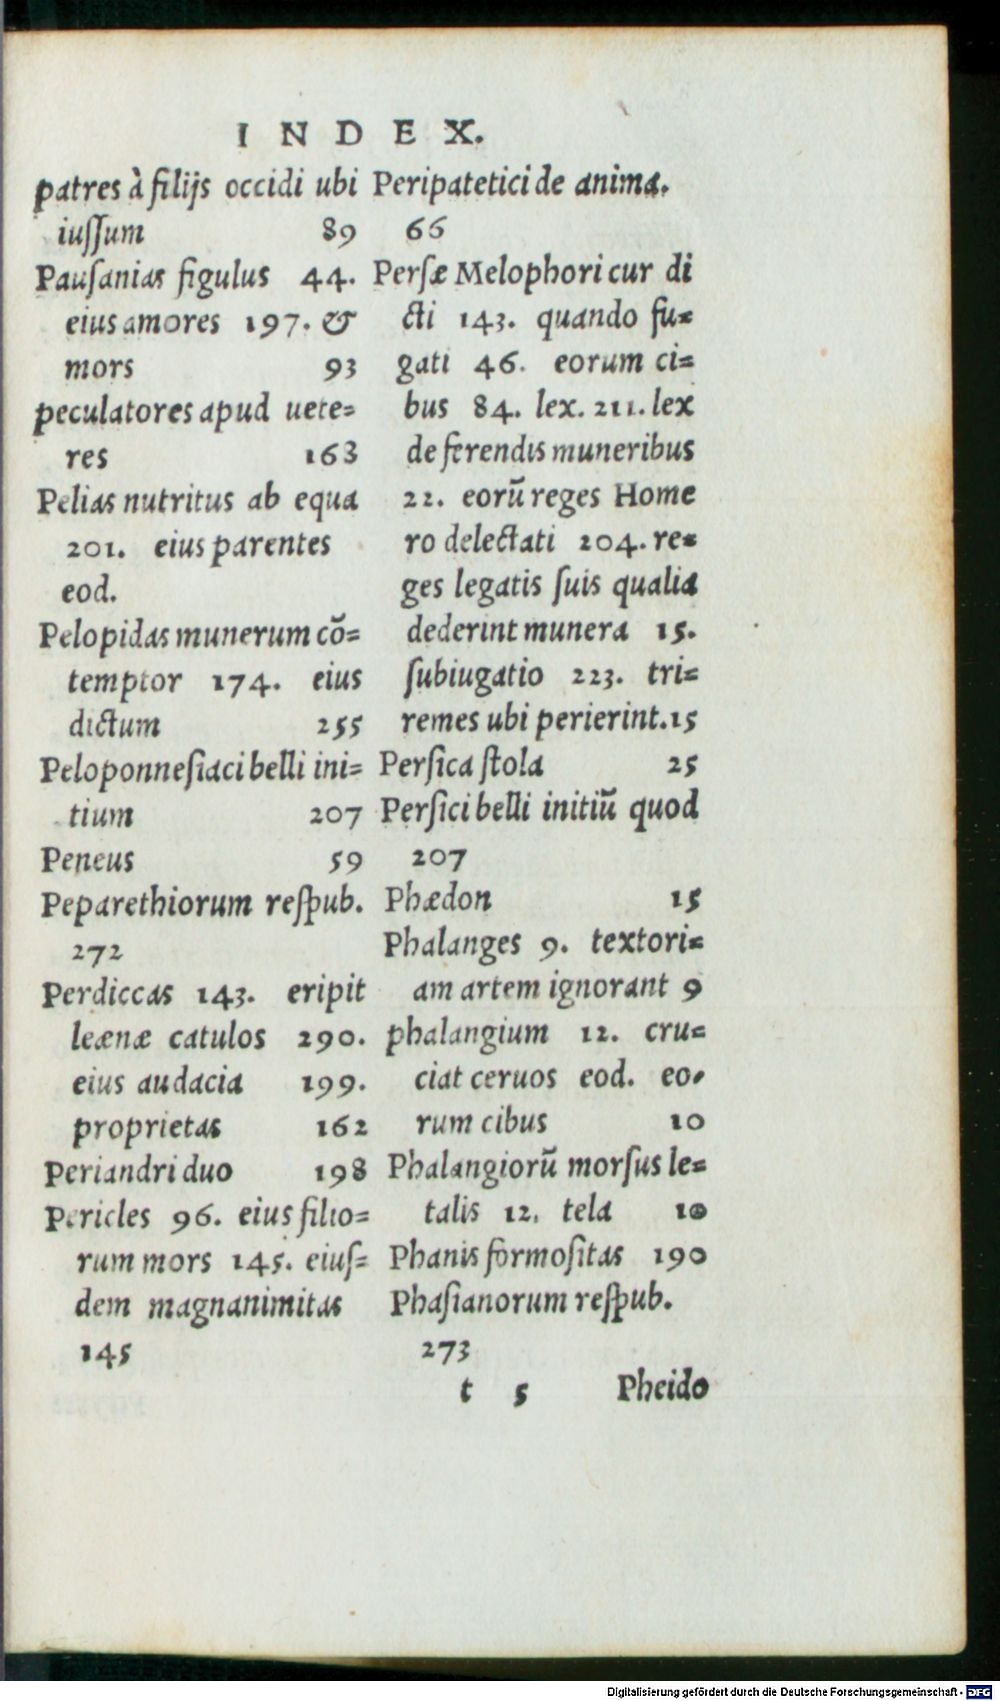 INDEX.
patres à filijs occidi ubi
iuſſum 89
Pauſanias figulus 44.
eius amores 197. &
mors 93
peculatores apud uete=
res 163
Pelias nutritus ab equa
201. eius parentes
eod.
Pelopidas munerum cõ=
temptor 174. eius
dictum 255
Peloponneſiaci belli ini=
tium 207
Peneus 59
Peparethiorum reſpub.
272
Perdiccas 143. eripit
leænæ catulos 290.
eius audacia 199.
proprietas 162
Periandri duo 198
Pericles 96. eius filio=
rum mors 145. eiuſ=
dem magnanimitas
145
Peripatetici de anima.
66
Perſæ Melophori cur di
cti 143. quando fu=
gati 46. eorum ci=
bus 84. lex. 211. lex
de ferendis muneribus
22. eorũ reges Home
ro delectati 204. re=
ges legatis ſuis qualia
dederint munera 15.
ſubiugatio 223. tri=
remes ubi perierint. 15
Perſica ſtola 25
Perſici belli initiũ quod
207
Phædon 15
Phalanges 9. textori=
am artem ignorant 9
phalangium 12. cru=
ciat ceruos eod. eo=
rum cibus 10
Phalangiorũ morſus le=
talis 12. tela 10
Phanis formoſitas 190
Phaſianorum reſpub.
273
t 5 Pheido
Digitalisierung gefördert durch die Deutsche Forschungsgemeinschaft - DFG